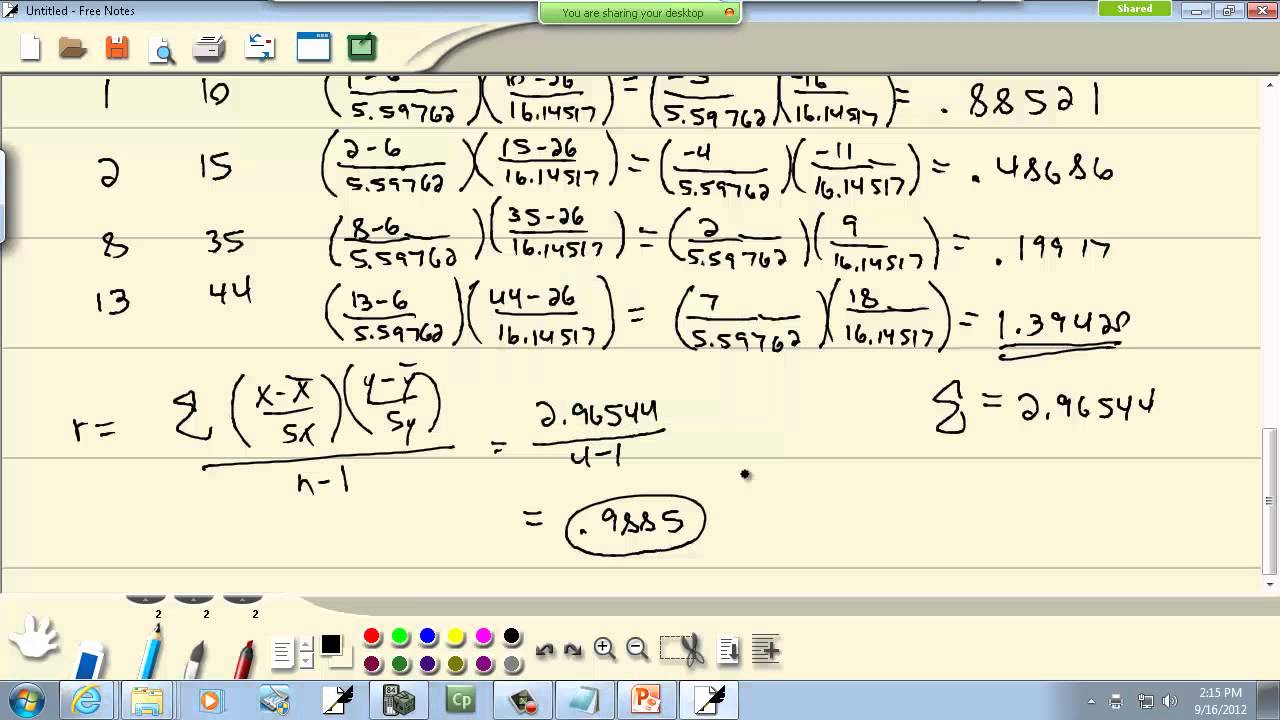 Untitled - Free Notes
You are sharing your desktop
Shared
1 10 (1-6/5.59762)(10-26/16.14517) = (-5/5.59762)(-16/16.14517) = .88521
2 15 (2-6/5.59762)(15-26/16.14517) = (-4/5.59762)(-11/16.14517) = .48686
8 35 (8-6/5.59762)(35-26/16.14517) = (2/5.59762)(9/16.14517) = .19917
13 44 (13-6/5.59762)(44-26/16.14517) = (7/5.59762)(18/16.14517) = 1.39420
r = Σ(x-x̄/Sx)(y-ȳ/Sy)/n-1 = 2.96544/4-1
Σ = 2.96544
= .9885
2 2 2
84
Cp
2:15 PM
9/16/2012